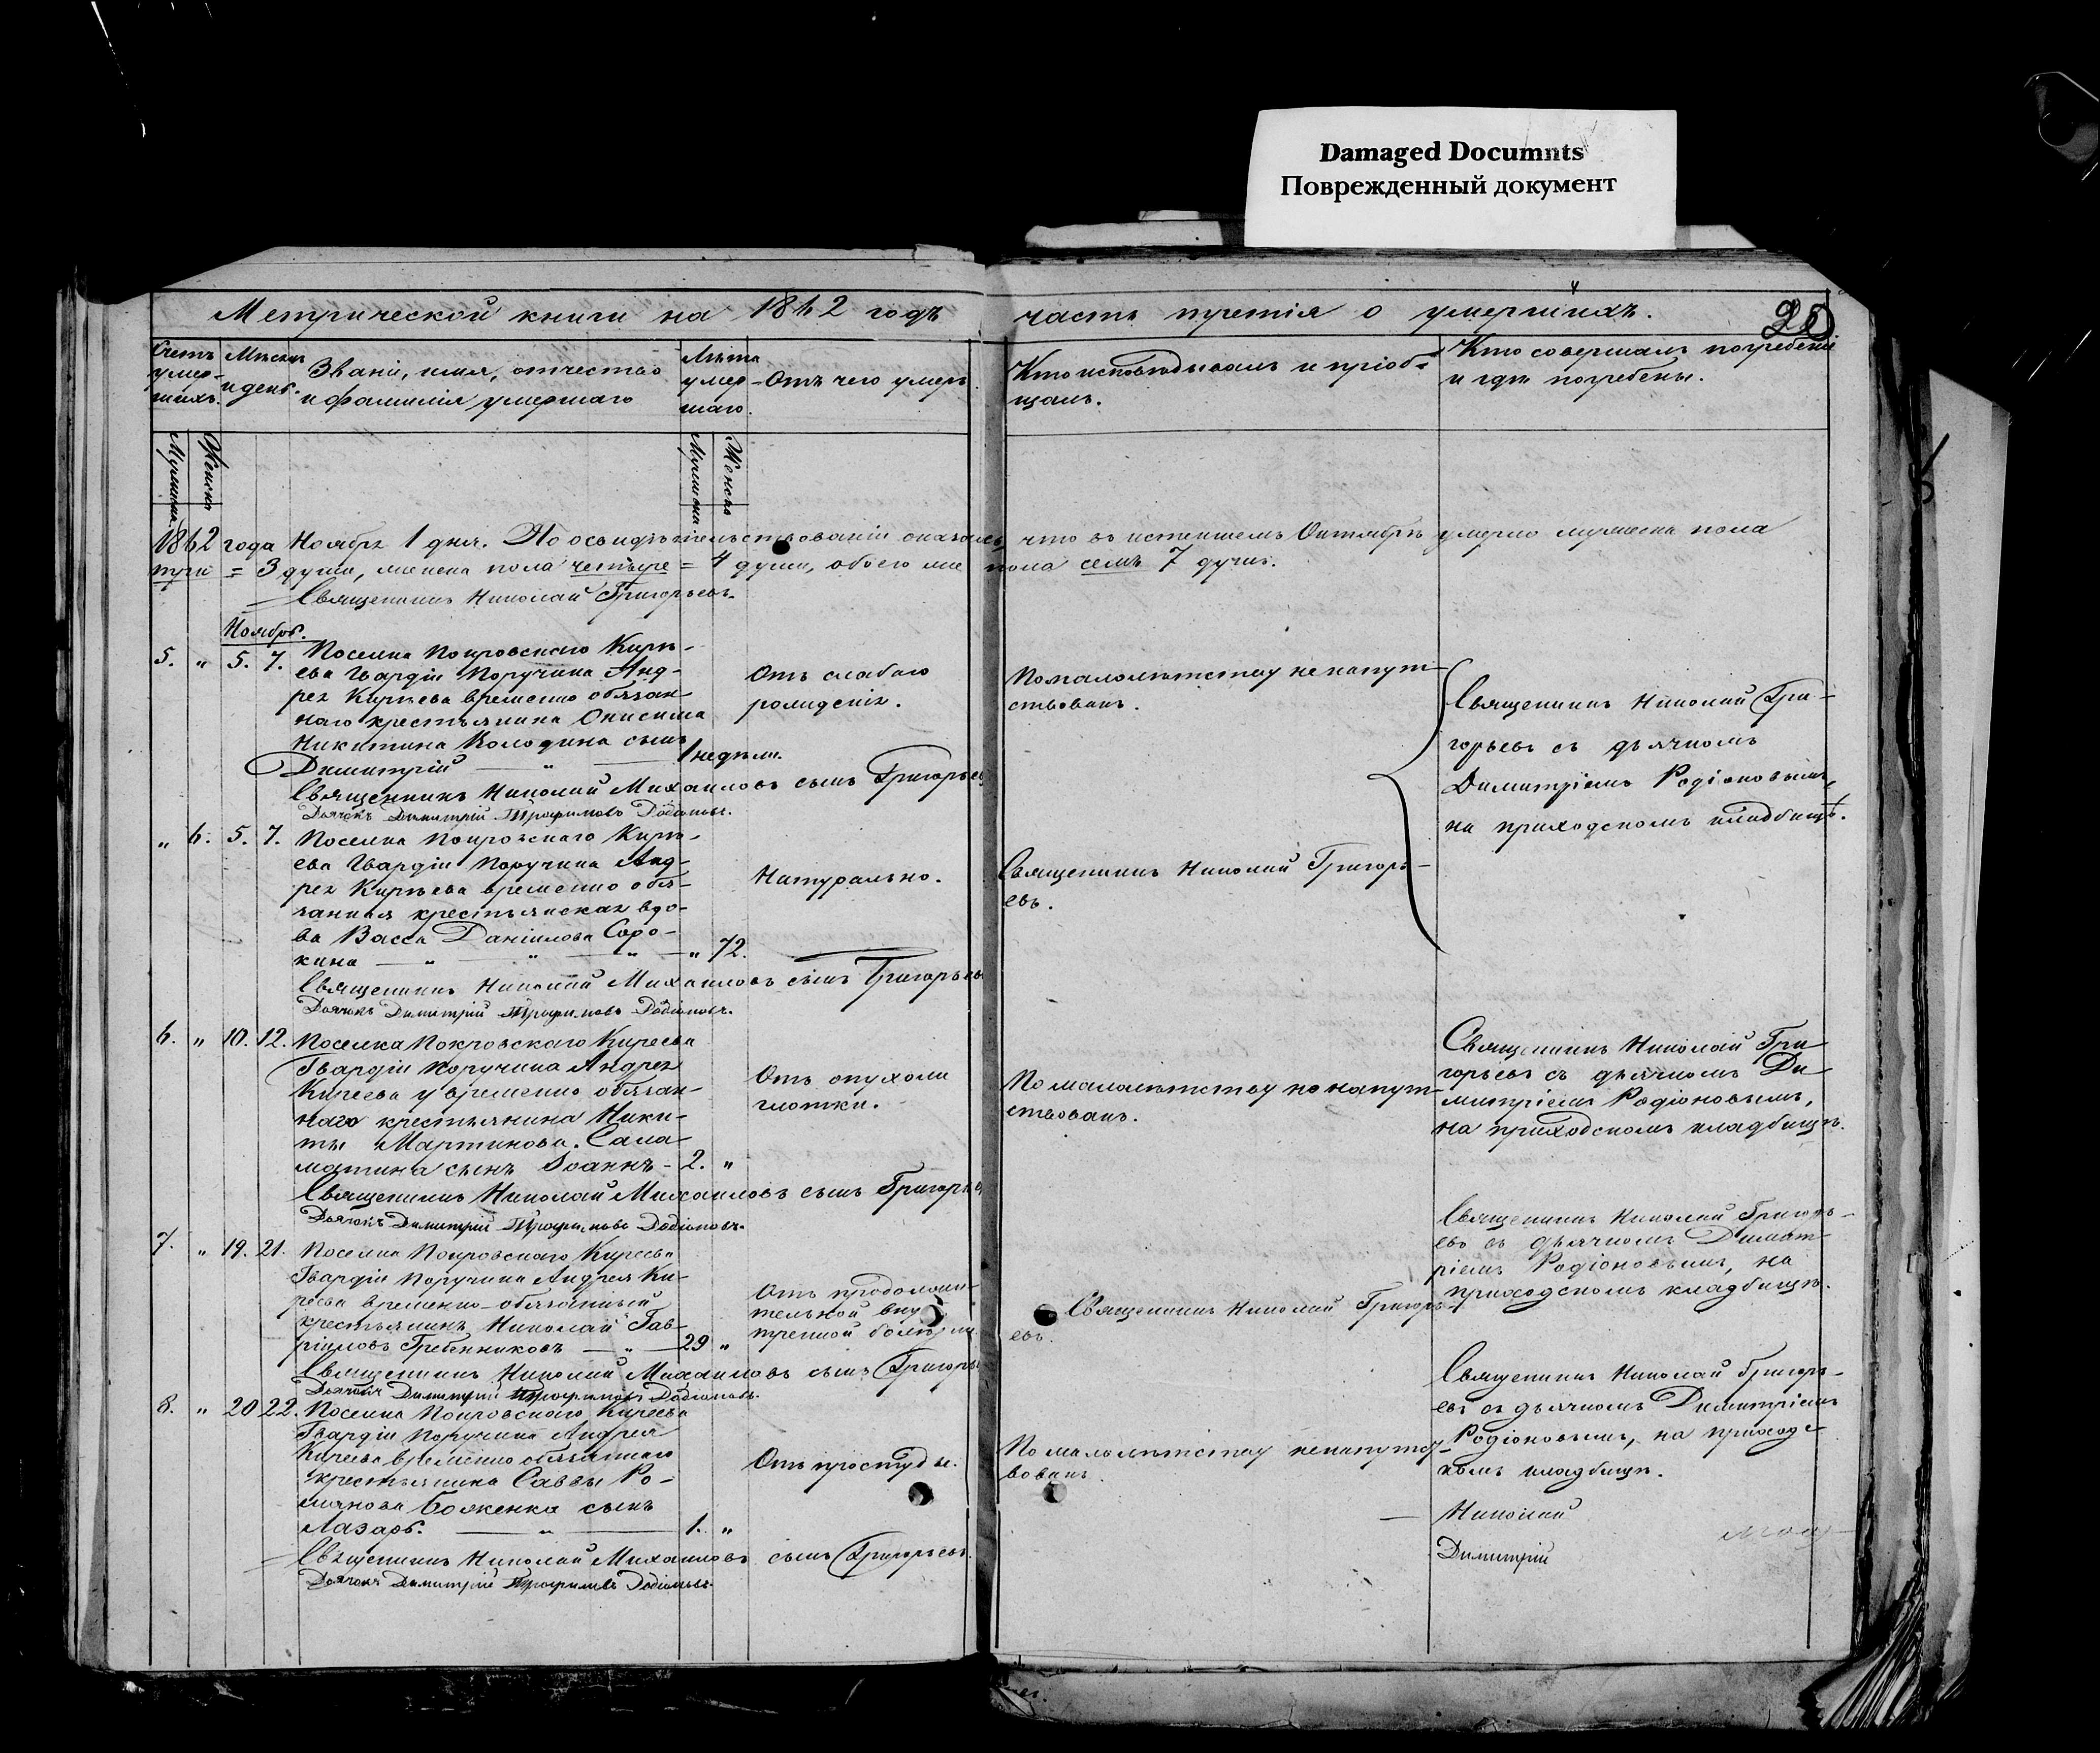 Damaged Documnts
Поврежденный документ
Метрической книги на 1862 годъ
часть третія о умершихъ.
Счетъ умер-шихъ.
Мѣсяцъ и день.
Званіе, имя, отчество
и фамилія умершаго
Лѣта умер-шаго.
Отъ чего умеръ.
Кто исповѣдывалъ и пріоб-
щалъ.
Кто совершалъ погребеніе
и гдѣ погребены.
Мужеска.
Женска
Мужеска.
Женска
1862 года Ноября 1 дня. По освидѣтельствованіи оказалось, что въ истекшемъ Октябрѣ умерло мужеска пола
три = 3 души, женска пола четыре = 4 души, обоего же пола семь 7 душъ.
Священникъ Николай Григорьевъ.
Ноябрь.
5. " 5. 7. Поселка Покровскаго Кирѣ-
ева Гвардіи Поручика Анд-
рея Кирѣева временно обязан
наго крестьянина Онисима
Никитина Колодина сынъ
Димитрій — " — 1 недѣли.
Отъ слабаго
рожденія.
По малолѣтству не напут-
ствованъ.
Священникъ Николай Гри-
горьевъ съ дьячкомъ
Димитріемъ Родіоновымъ,
на приходскомъ кладбищѣ.
Священникъ Николай Михаиловъ сынъ Григорьевъ
Дьячокъ Димитрій Трофимовъ Родіоновъ.
" 6. 5. 7. Поселка Покровскаго Кирѣ-
ева Гвардіи Поручика Анд-
рея Кирѣева временно обя-
занная крестьянская вдо-
ва Васса Даніилова Соро-
кина — " — " — " — " 72.
Натурально.
Священникъ Николай Григорь-
евъ.
Священникъ Николай Михаиловъ сынъ Григорьевъ
Дьячокъ Димитрій Трофимовъ Родіоновъ.
6. " 10. 12. Поселка Покровскаго Киреева
Гвардіи Поручика Андрея
Киреева у временно обязан-
наго крестьянина Ники-
ты Мартинова. Сала
матина сынъ Іоаннъ - 2. "
Отъ опухоли
глотки.
По малолѣтству не напут-
ствованъ.
Священникъ Николай Гри
горьевъ съ дьячкомъ Ди
митріемъ Родіоновымъ,
на приходскомъ кладбищѣ.
Священникъ Николай Михаиловъ сынъ Григорьевъ
Дьячокъ Димитрій Трофимовъ Родіоновъ.
7. " 19. 21. Поселка Покровскаго Киреева
Гвардіи Поручика Андрея Ки-
реева временно-обязанный
крестьянинъ Николай Гав-
ріиловъ Гребенниковъ — " — 29 "
Отъ продолжи-
тельной вну
тренной болѣзни
Священникъ Николай Григорь-
евъ.
Священникъ Николай Григорь-
евъ съ дьячкомъ Димит-
ріемъ Родіоновымъ, на
приходскомъ кладбищѣ.
Священникъ Николай Михаиловъ сынъ Григорьевъ
Дьячокъ Димитрій Трофимовъ Родіоновъ.
8. " 20 22. Поселка Покровскаго Киреева
Гвардіи Поручика Андрея
Киреева временно обязаннаго
крестьянина Саввы Ро-
манова Боженка сынъ
Лазарь. — " — 1. "
Отъ простуды.
По малолѣтству не напутст-
вованъ.
Священникъ Николай Григорь-
евъ съ дьячкомъ Димитріемъ
Родіоновымъ, на приходс-
комъ кладбищѣ.
Священникъ Николай Михаиловъ сынъ Григорьевъ.
Дьячокъ Димитрій Трофимовъ Родіоновъ.
Николай
Димитрій